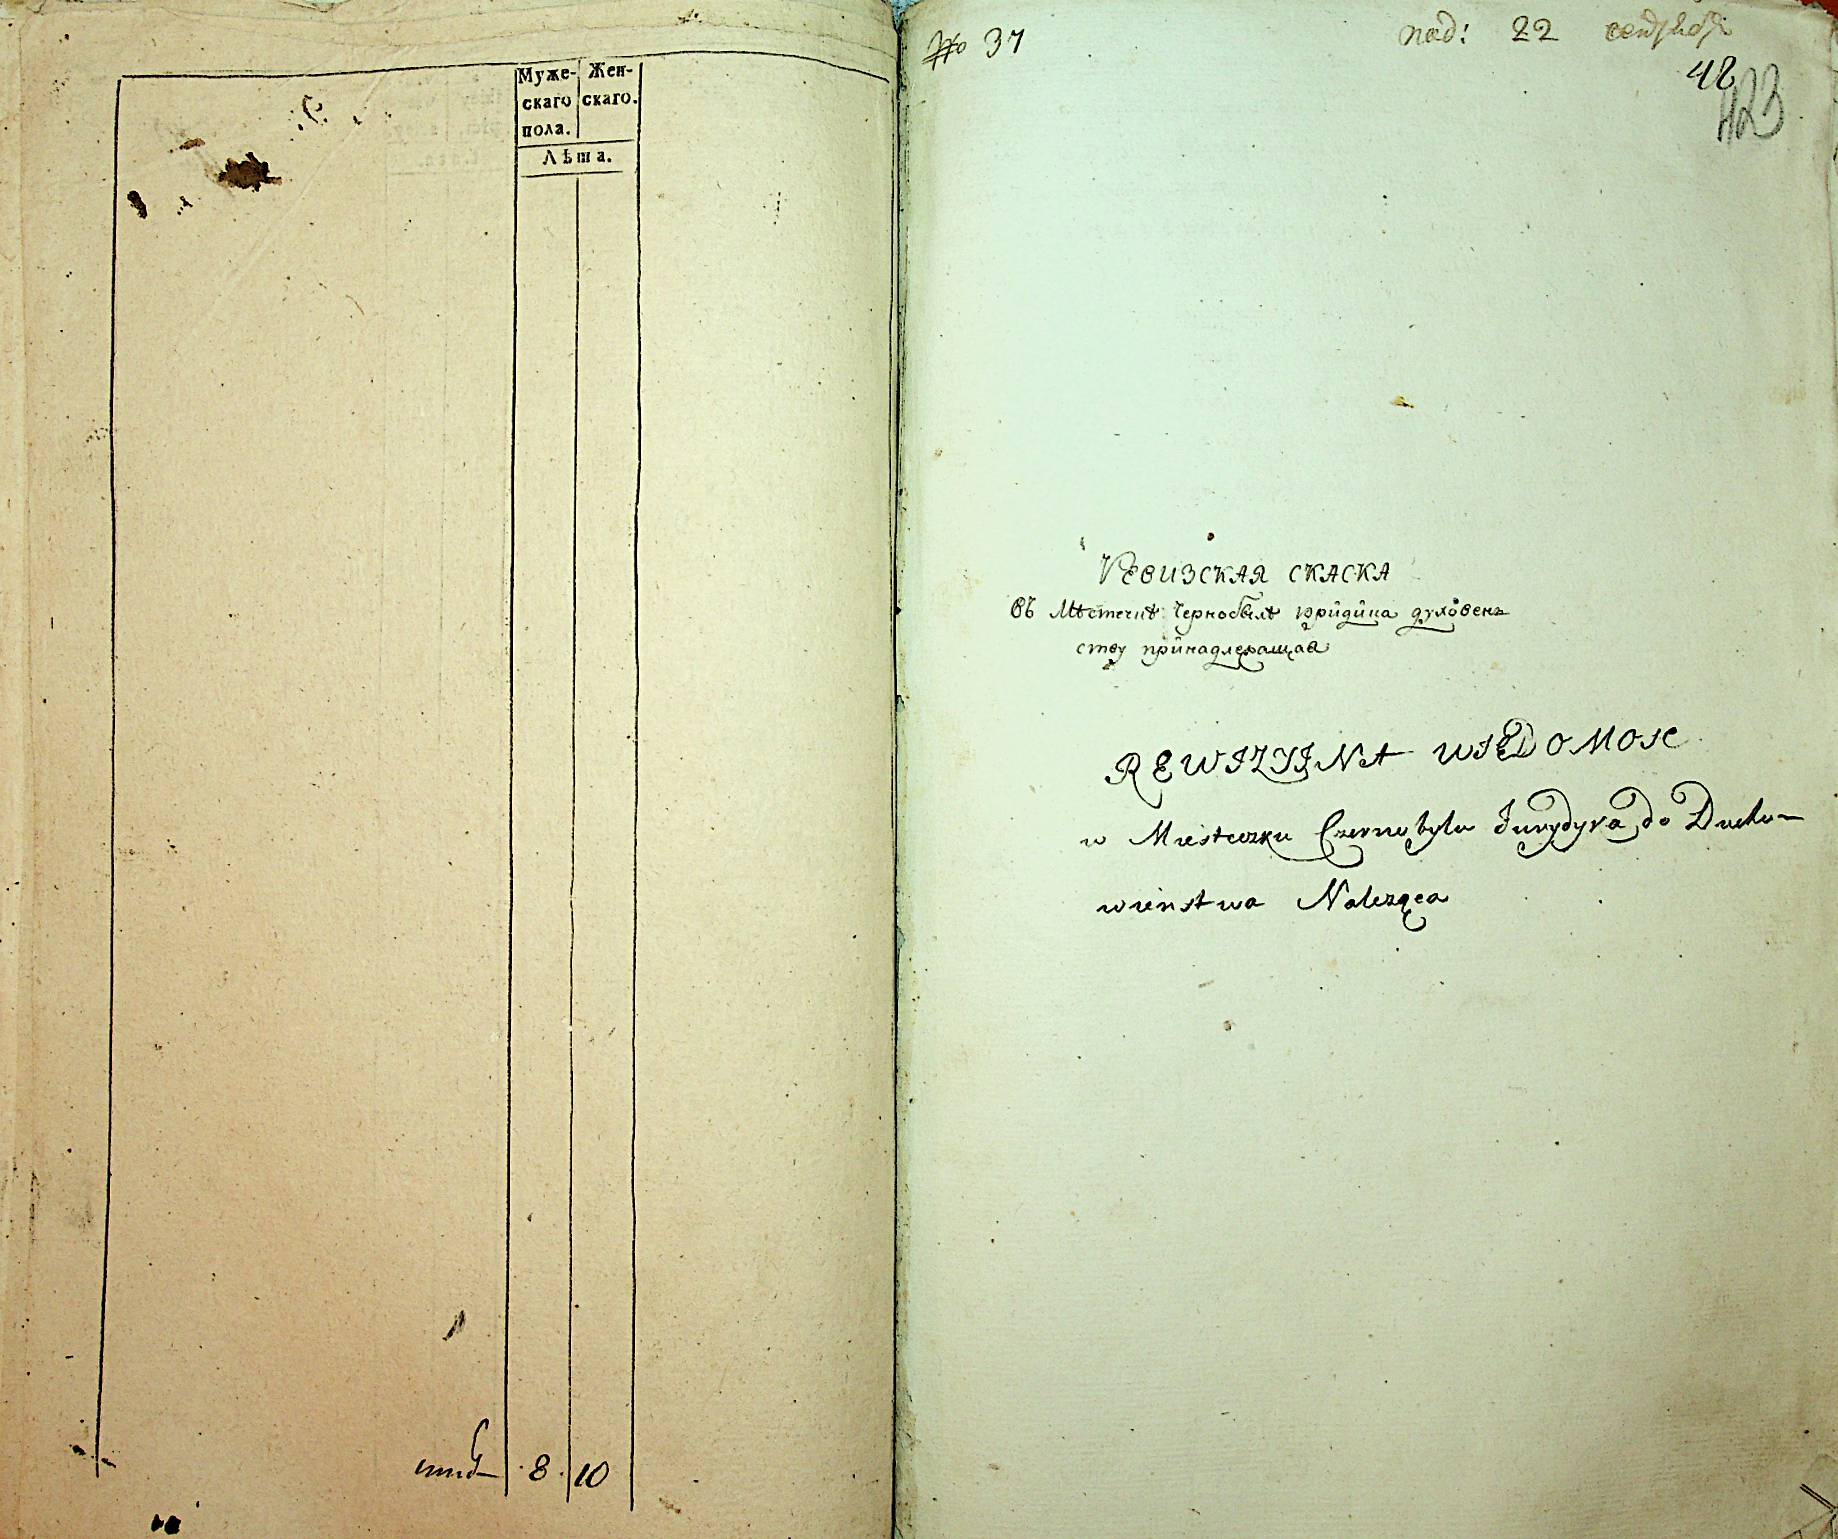 Муже- Жен-
скаго скаго.
пола.
Лѣта.
8 10
№ 37
под: 22 сентября
42
423
РЕВИЗСКАЯ СКАСКА
въ Мѣстечкѣ Чернобылѣ юридика духовен
ству принадлежащая
REWIZYJNA WIEDOMOSC
w Miesteczku Czernobylu Jurydyka do Ducho-
wienstwa Naleząca